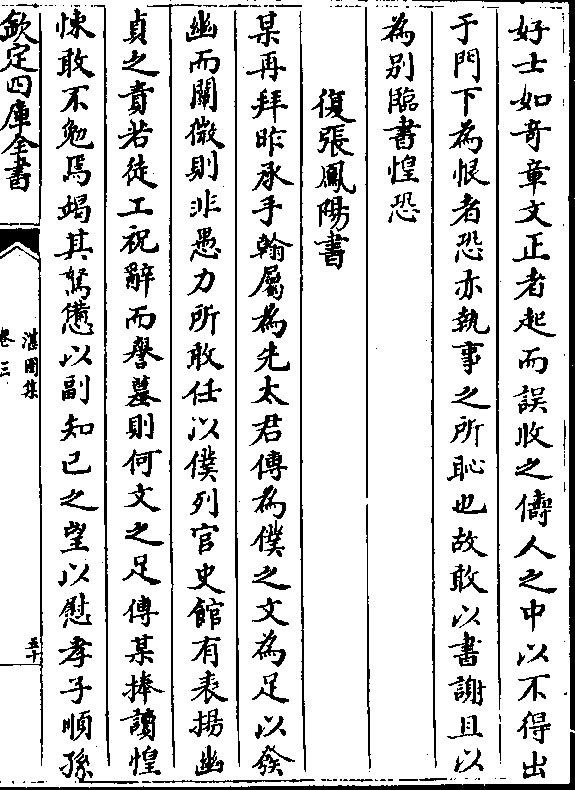 好士如奇章文正者起而誤收之儔人之中以不得出
于門下為恨者恐亦執事之所恥也故敢以書謝且以
為别臨書惶恐
復張鳳陽書
某再拜昨承手翰屬為先太君傳為僕之文為足以發
幽而闡微則非愚力所敢任以僕列官史館有表揚幽
貞之責若徒工祝辭而譽墓則何文之足傳某捧讀惶
悚敢不勉焉竭其駑憊以副知己之望以慰孝子順孫
欽定四庫全書
湛園集
卷三
五十